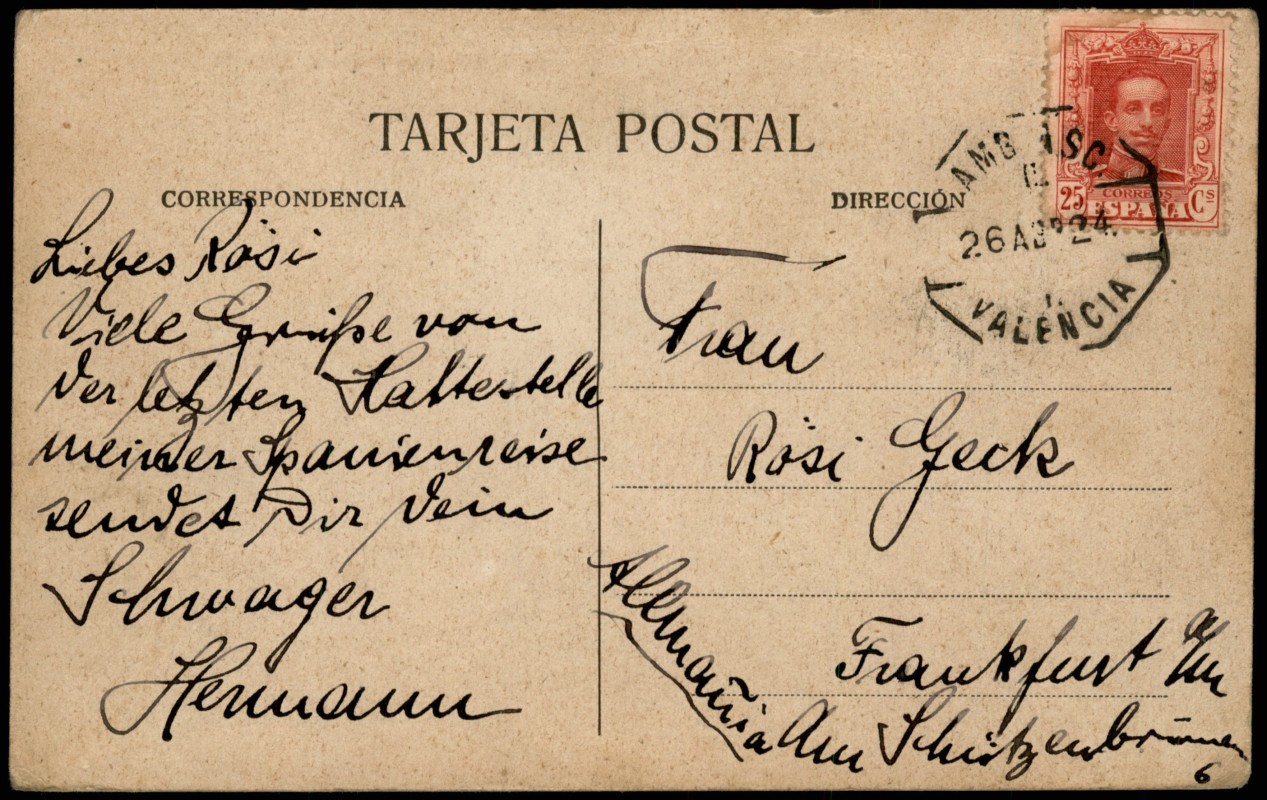 TARJETA POSTAL
CORRESPONDENCIA
Liebes Rösi
Viele Grüße von
der letzten Haltestelle
meiner Spanienreise
sendet Dir Dein
Schwager
Hermann
DIRECCIÓN
Frau
Rösi Geck
Frankfurt a/M
Am Schützenbrunnen
6
Allemania
25 CORREOS Cs
ESPAÑA
AMB ASC.
26 ABR 24.
VALENCIA